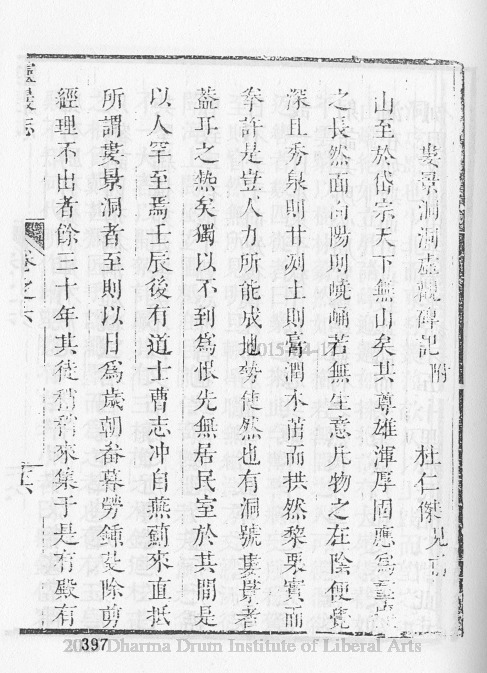 婁景洞洞虛觀碑記附 杜仁傑見前
山至於岱宗天下無山矣其尊雄渾厚固應為
之長然面向陽則嶢崅若無生意凡物之在陰便覺
深且秀泉則甘冽土則膏潤木茁而拱然黎栗實而
拳許是豈人力所能成地勢使然也有洞號婁景者
葢耳之熱矣獨以不到為恨先無居民室於其間是
以人罕至焉壬辰後有道士曹志冲自燕薊來直抵
所謂婁景洞者至則以日為歲朝畚暮勞鍾芟除剪
經理不出者餘三十年其徒稍稍來集于是有殿有
靈巖志 卷之六
397
Dharma Drum Institute of Liberal Arts